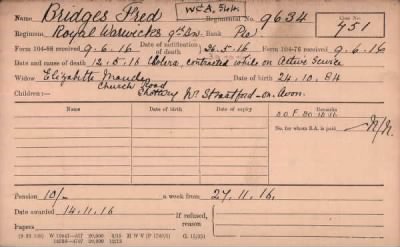 W & A. 5414.
Name Bridges Fred Regimental No. 9634 Case No.
Regiment Royal Warwicks 9th Bn. Rank Pte. 451
Form 104-88 received 9.6.16 Date of notification of death 26.5.16 Form 104-76 received 9.6.16
Date and cause of death 12.5.16 Cholera, contracted while on Active Service
Widow Elizabeth Maude Date of birth 24.10.84
Church Road
Children: Shottery Nr Stratford-on-Avon.
Name Date of birth Date of expiration Name Date of birth Date of expiration Remarks
D.O.F. 20.10.16
No. for whom S.A. is paid Nil.
Pension 10/- a week from 27.11.16.
Date awarded 14.11.16 If refused, reason
Papers